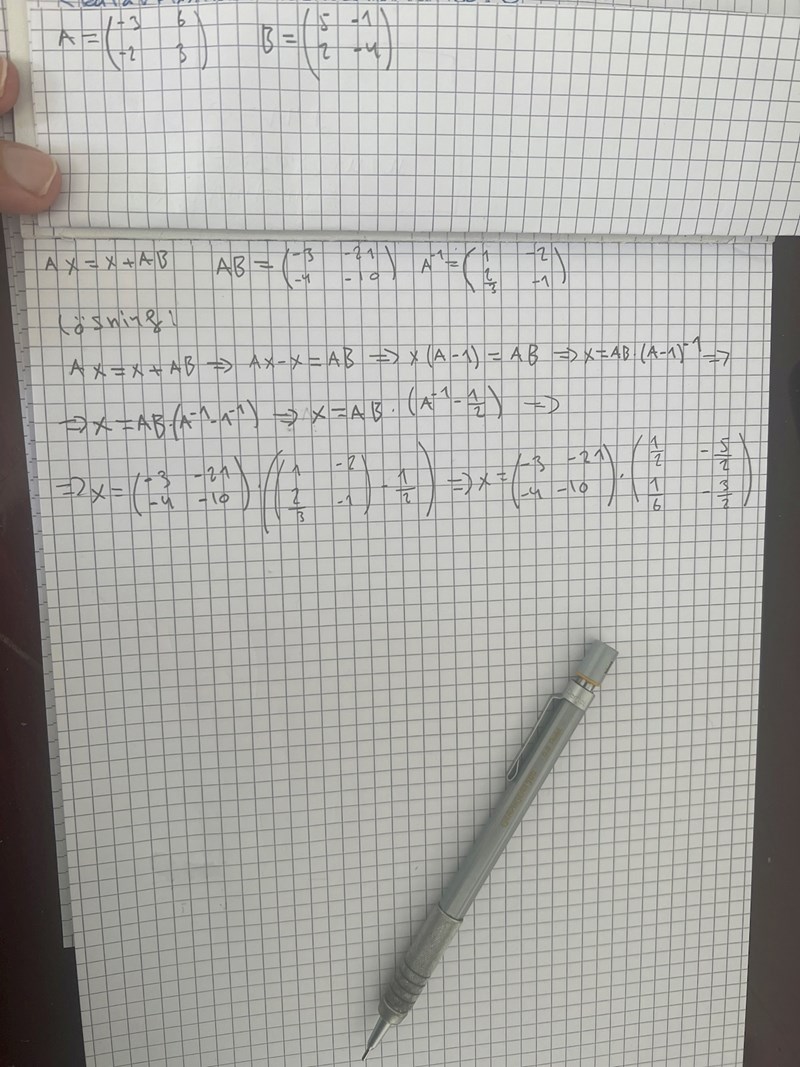 A = (-3 6 -2 3) B = (5 -1 2 -4)
AX = X + AB AB = (-3 -21 -4 -10) A⁻¹ = (1 -2 2/3 -1)
Lösning:
AX = X + AB ⇒ AX - X = AB ⇒ X(A-1) = AB ⇒ X = AB·(A-1)⁻¹ ⇒
⇒ X = AB·(A⁻¹-1⁻¹) ⇒ X = AB·(A⁻¹ - 1/2) ⇒
⇒ X = (-3 -21 -4 -10)·((1 -2 2/3 -1) - 1/2) ⇒ X = (-3 -21 -4 -10)·(1/2 -5/2 1/6 -3/2)